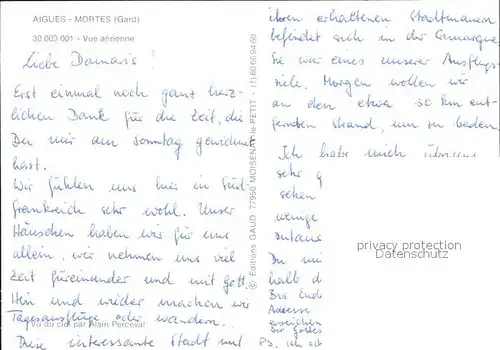 AIGUES - MORTES (Gard)
30.003.001 - Vue aérienne
Liebe Damaris!
Erst einmal noch ganz herz-
lichen Dank für die Zeit, die
Du mir am Sonntag gewidmet
hast.
Wir fühlen uns hier in Süd-
frankreich sehr wohl. Unser
Häuschen haben wir für uns
allein, wir nehmen uns viel
Zeit füreinander und mit Gott.
Hin und wieder machen wir
Tagesausflüge oder wandern..
Vu du ciel par Alain Perceval
Diese interessante Stadt mit
© Editions GAUD 77950 MOISENAY-le-PETIT - (1) 60669450
ihren erhaltenen Stadtmauern
befindet sich in der Camargue
Sie war eines unserer Ausflugs-
ziele. Morgen wollen wir
an den etwa 50 km ent-
fernten Strand, um zu baden.
Ich habe mich
sehr g
sehen
wenige
Du mi
halb d
Bis Ende
Adresse
erreichen
PS. ich
privacy protection
Datenschutz